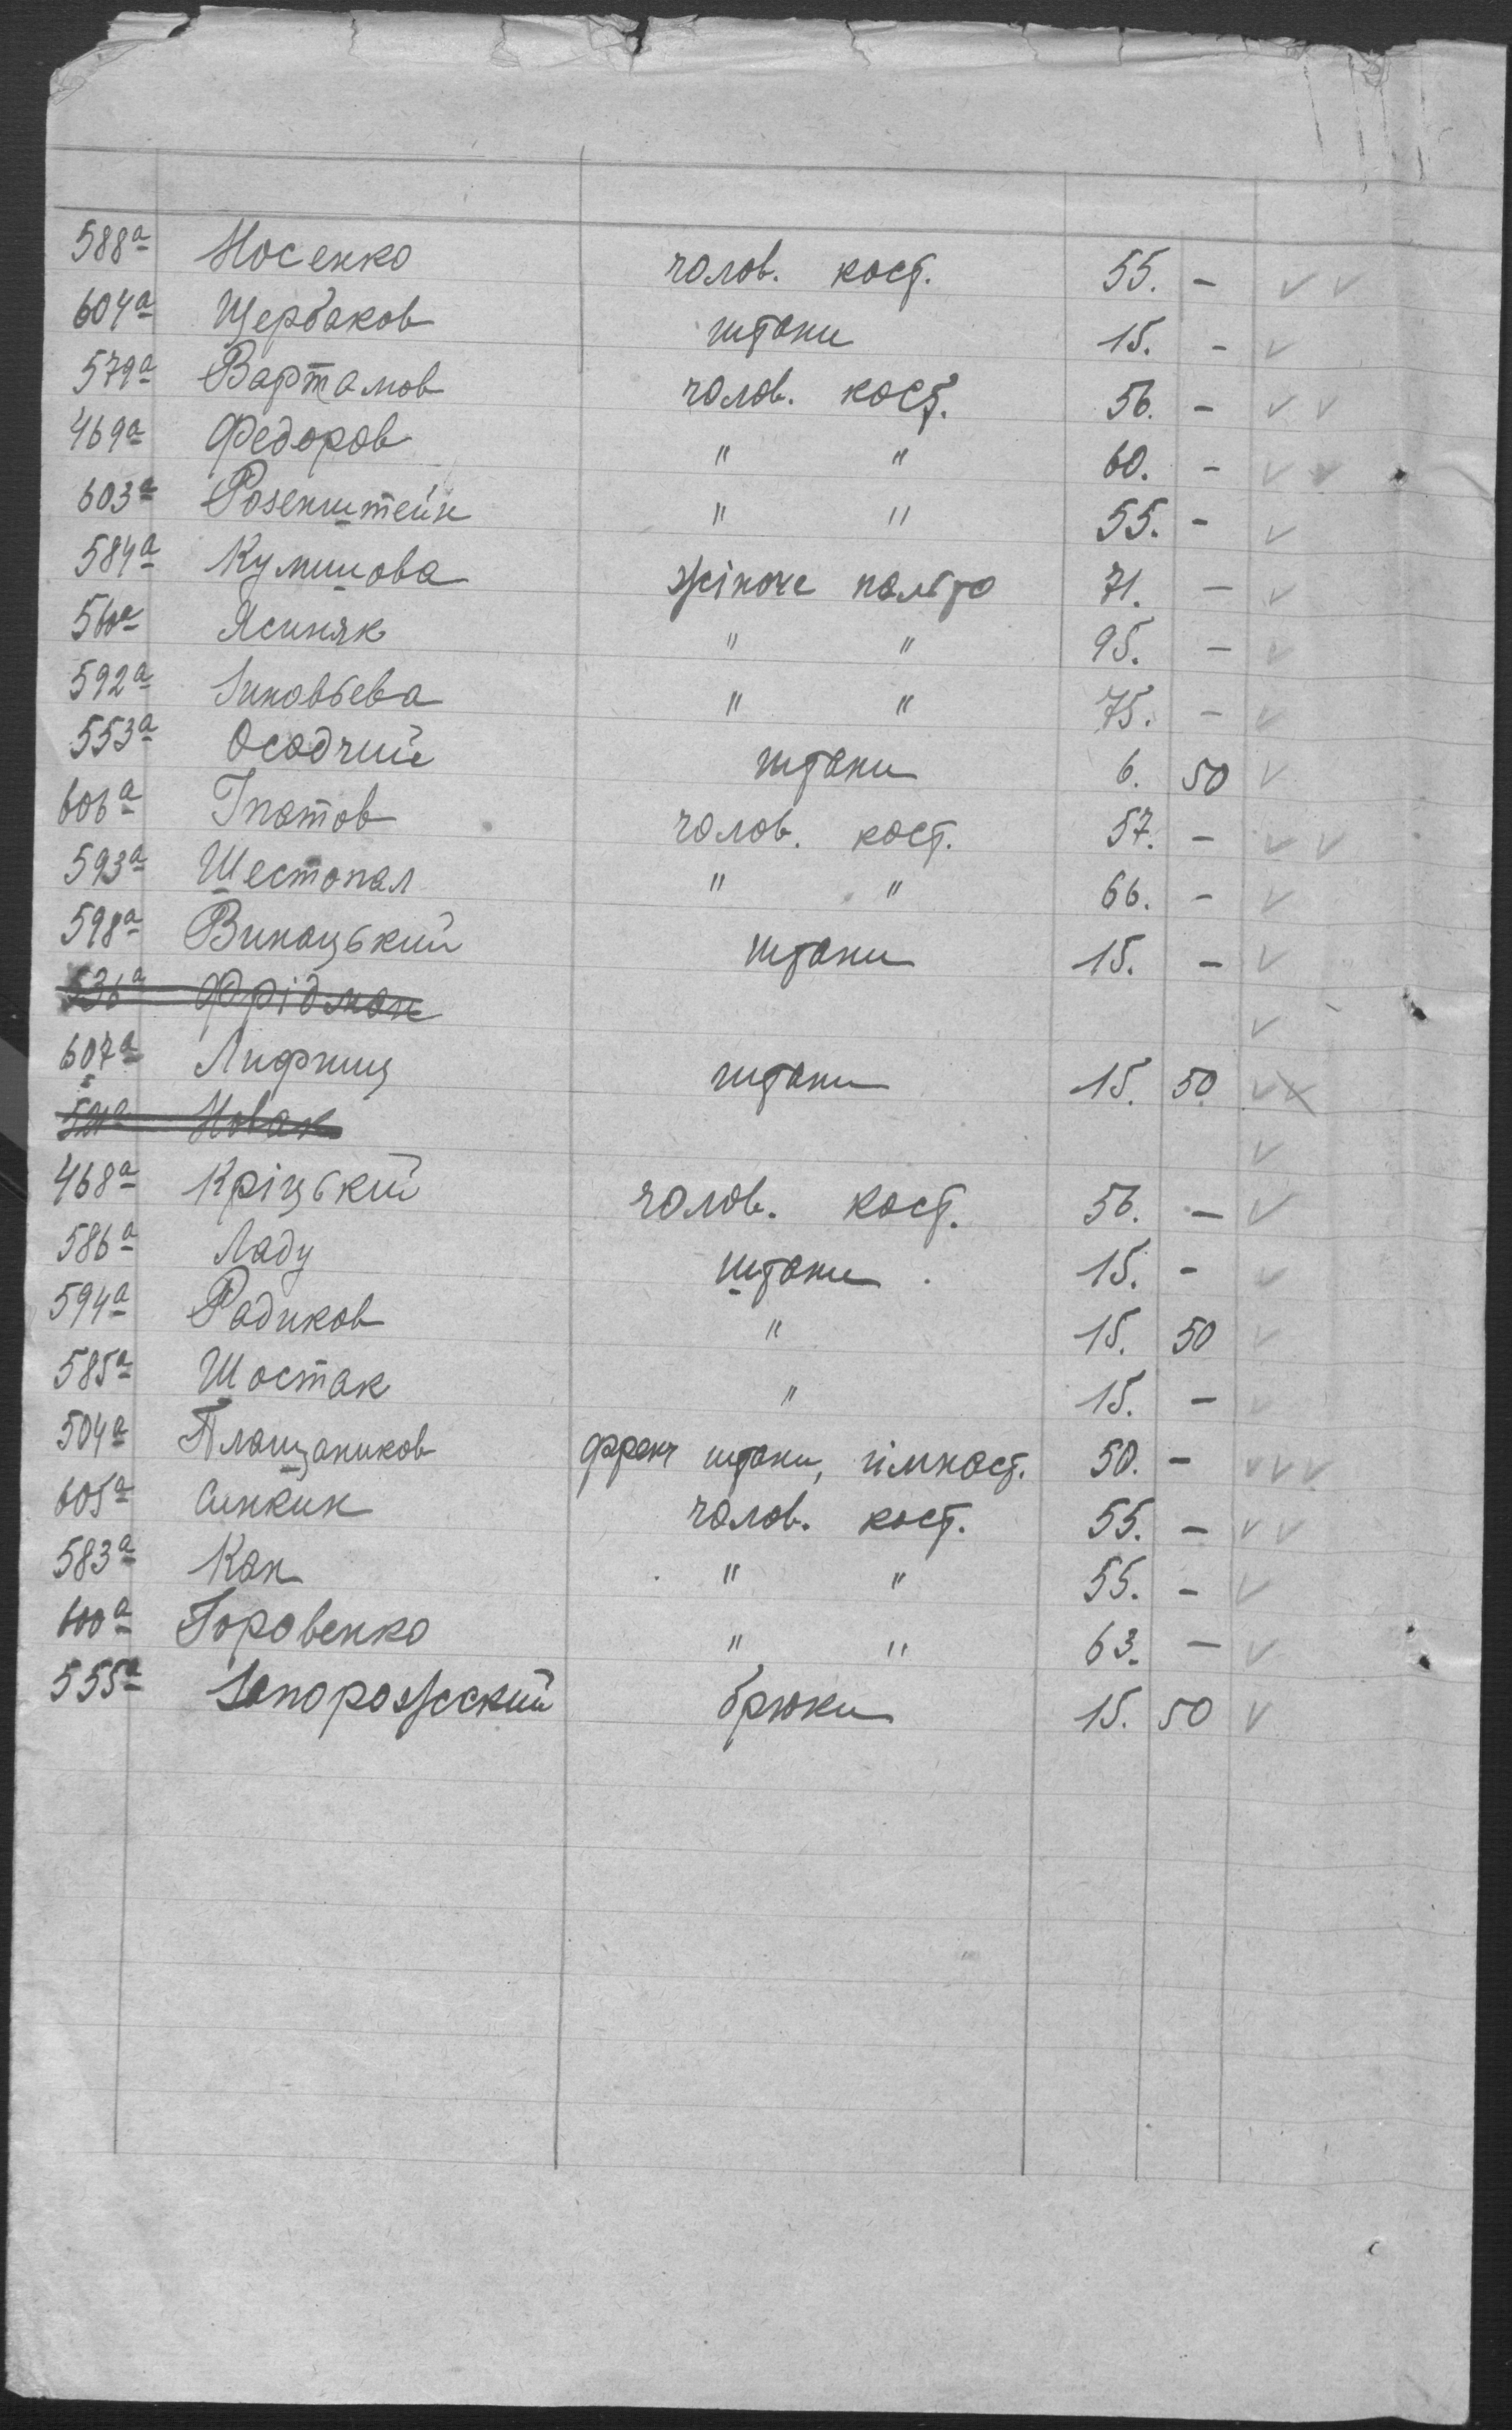 588а Носенко чолов. кост. 55. - ✓ ✓
604а Щербаков штани 15. - ✓
579а Вартамов чолов. кост. 56. - ✓ ✓
469а Федоров " " 60. - ✓ ✓
603а Розенштейн " " 55. - ✓
584а Кумишова жіноче пальто 71. - ✓
560а Ясиняк " " 95. - ✓
592а Зиновьева " " 75. - ✓
553а Осадчий штани 6. 50 ✓
606а Гпатов чолов. кост. 57. - ✓ ✓
593а Шестопал " " 66. - ✓
598а Винацький штани 15. - ✓
536а Фрідман ✓
607а Лифшиц штани 15. 50. ✓
Новак ✓
468а Кріцький чолов. кост. 56. - ✓
586а Ладу штани. 15. - ✓
594а Радиков " 15. 50 ✓
585а Шостак " 15. - ✓
504а Плащаников френч штани, гімнаст. 50. - ✓ ✓ ✓
605а Синкин чолов. кост. 55. - ✓ ✓
583а Кан " " 55. - ✓
600а Горовенко " " 63. - ✓
555а Запорожский брюки 15. 50 ✓